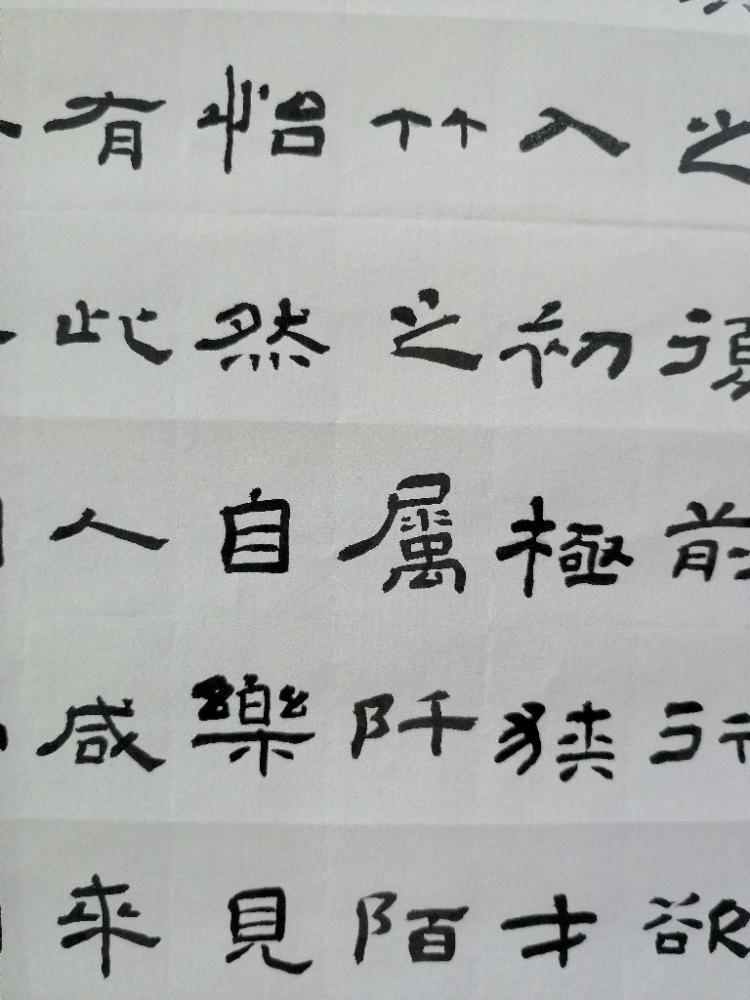 之復前行欲
入初極狹才
竹之屬阡陌
怡然自樂見
有此人咸來